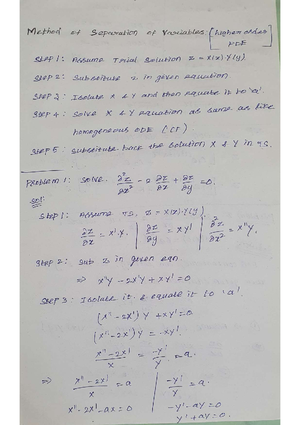 Method of Separation of Variables: [higher order
PDE
Step 1: Assume Trial Solution z = X(x) Y(y)
Step 2: Substitute z in given equation
Step 3: Isolate X & Y and then equate it to 'a'.
Step 4: Solve X & Y equation as same as like
homogeneous ODE (CF)
Step 5: Substitute back the solution X & Y in T.S.
Problem 1: Solve ∂²z/∂x² - 2 ∂z/∂x + ∂z/∂y = 0.
Sol:
Step 1: Assume T.S, z = X(x).Y(y).
∂z/∂x = X'.Y. | ∂z/∂y = XY' | ∂²z/∂x² = X''Y.
Step 2: Sub z in given eqn
⇒ X''Y - 2X'Y + XY' = 0
Step 3: Isolate it & equate it to 'a'.
(X'' - 2X') Y + XY' = 0
(X'' - 2X') Y = -XY'
X'' - 2X' / X = -Y' / Y = a.
⇒ X'' - 2X' / X = a | -Y' / Y = a.
X'' - 2X' - aX = 0 | -Y' - aY = 0
Y' + aY = 0.